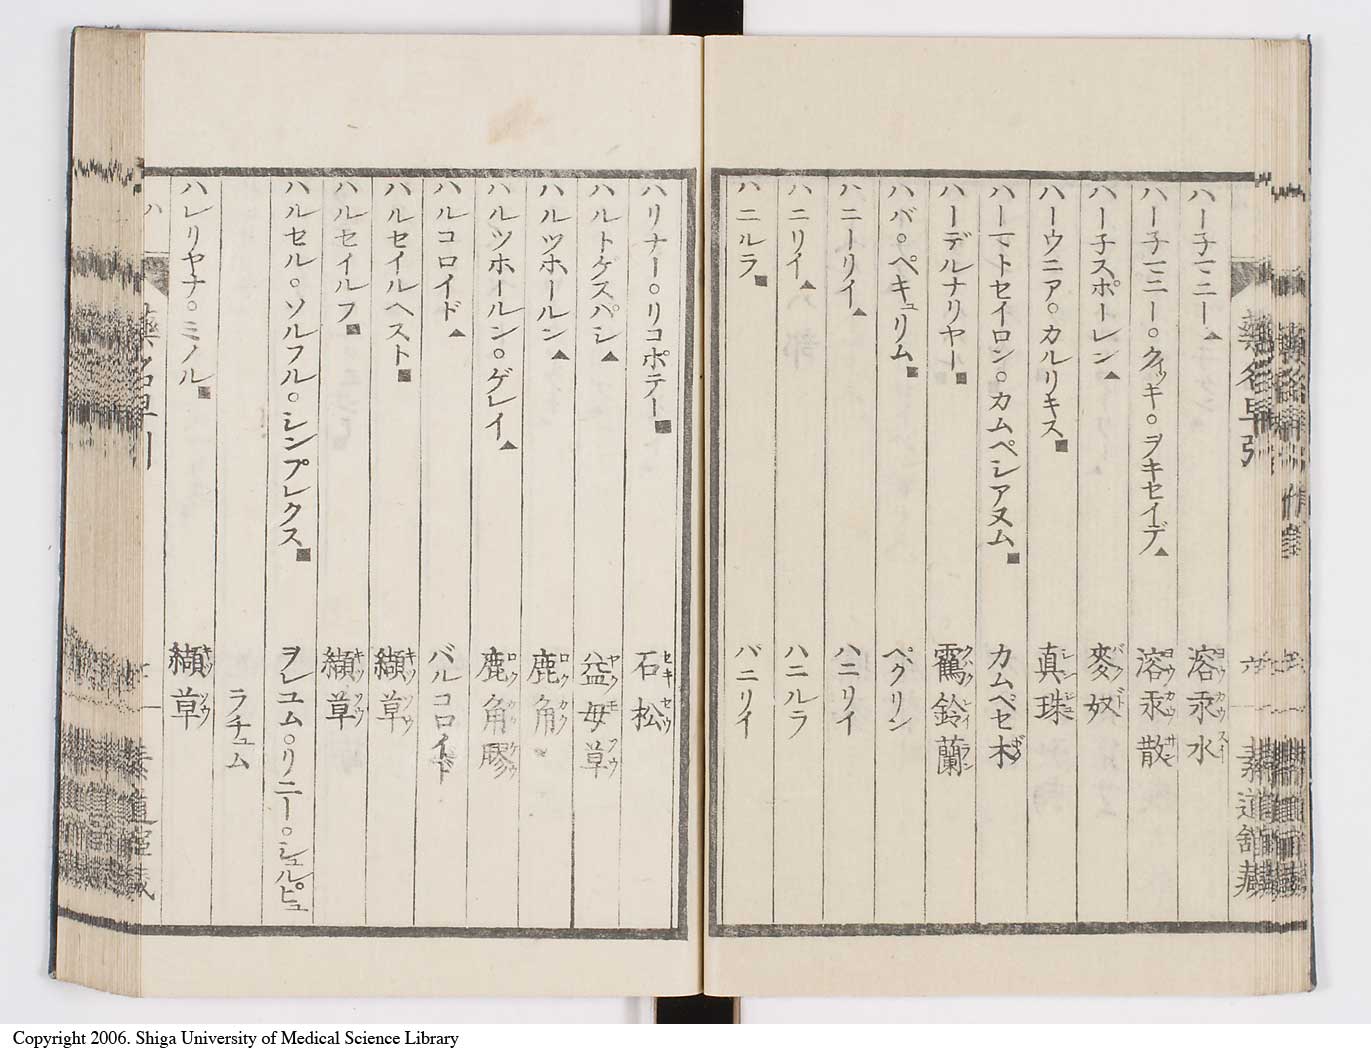 ハー子マニー▲ 溶汞水
ハー子マニー○クィッキ○ヲキセイデ▲ 溶汞散
ハー子スポーレン▲ 麥奴
ハーウニア○カルリキス■ 真珠
ハーマトセイロン○カムペシアヌム■ カムペセ木
ハーデルナリヤー■ 鸖鈴蘭
ハバ○ペキュリム■ ペクリン
ハニーリイ▲ ハニリイ
ハニリイ▲ ハニルラ
ハニルラ■ バニリイ
ハリナー○リコポテー■ 石松
ハルトゲスパン▲ 益母草
ハルツホールン▲ 鹿角
ハルツホールン○ゲレイ▲ 鹿角膠
ハルコロイド▲ バルコロイド
ハルセイルヘスト■ 纈草
ハルセイルフ■ 纈草
ハルセル○ソルフル○シンプレクス■ ヲレユム○リニー○シェルピュ
ラチュム
ハレリヤナ○ミノル■ 纈草
Copyright 2006. Shiga University of Medical Science Library